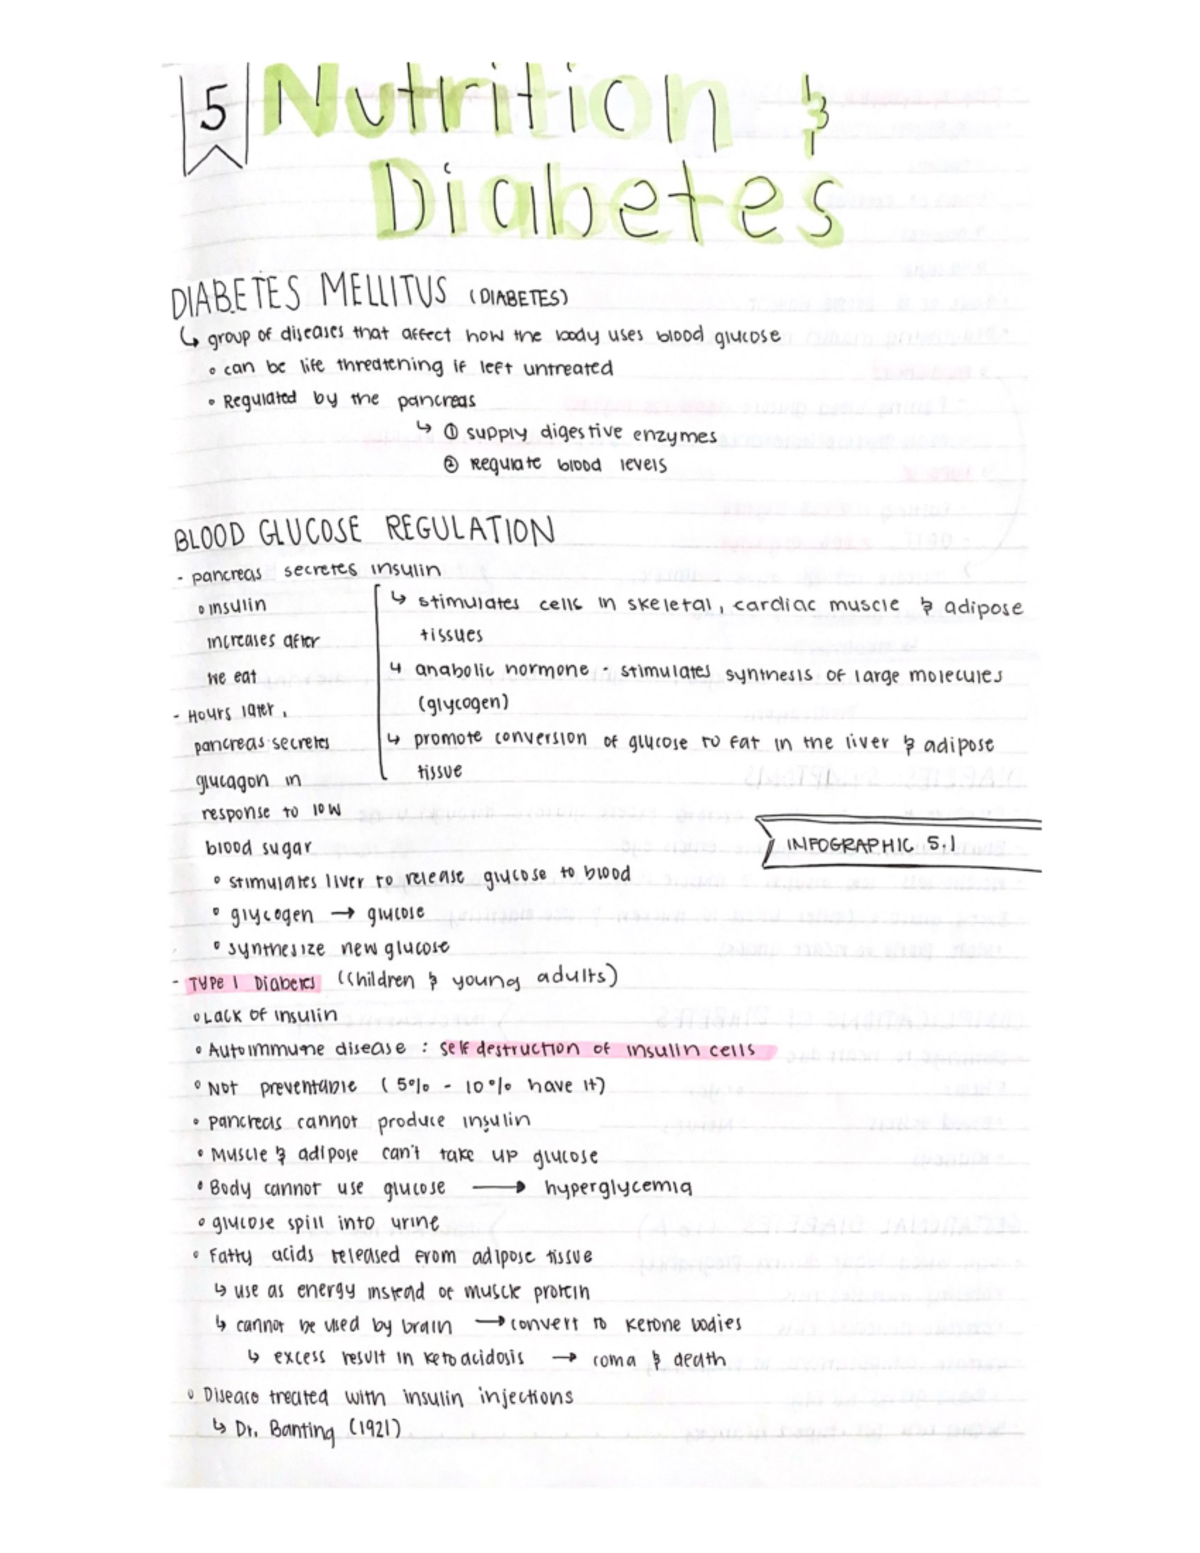 5 Nutrition &
Diabetes
DIABETES MELLITUS (DIABETES)
↳ group of diseases that affect how the body uses blood glucose
◦ can be life threatening if left untreated
◦ Regulated by the pancreas
↳ ① supply digestive enzymes
② Regulate blood levels
BLOOD GLUCOSE REGULATION
- pancreas secretes insulin
◦ insulin
increases after
we eat
- Hours later,
pancreas secretes
glucagon in
response to low
blood sugar
↳ stimulates cells in skeletal, cardiac muscle & adipose
tissues
↳ anabolic hormone - stimulates synthesis of large molecules
(glycogen)
↳ promote conversion of glucose to fat in the liver & adipose
tissue
INFOGRAPHIC 5.1
◦ stimulates liver to release glucose to blood
◦ glycogen → glucose
◦ synthesize new glucose
- Type 1 Diabetes (Children & young adults)
◦ Lack of insulin
◦ Autoimmune disease : self destruction of insulin cells
◦ Not preventable (5% - 10% have it)
◦ pancreas cannot produce insulin
◦ Muscle & adipose can't take up glucose
◦ Body cannot use glucose → hyperglycemia
◦ glucose spill into urine
◦ Fatty acids released from adipose tissue
↳ use as energy instead of muscle protein
↳ cannot be used by brain → convert to ketone bodies
↳ excess result in ketoacidosis → coma & death
◦ Disease treated with insulin injections
↳ Dr. Banting (1921)